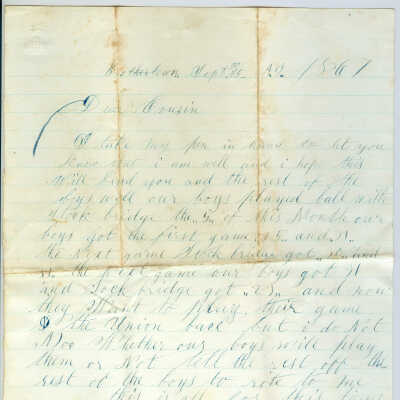 Brothertown Sept 186 1867
Dear Cousin
I take my pen in hand to let you
know that i am well and i hope this
will find you and the rest of the
boys well our boys played ball with
Stock bridge the 5 of this Month our
boys got the first game and
the next game Stock bridge got and
the next game our boys got
and Stock bridge got 25 and now
they Want to play their game
the Union ball but i do Not
Noo Whether our boys will play
them or Not tell the rest off the
rest of the boys to rote to me
this is all for this time